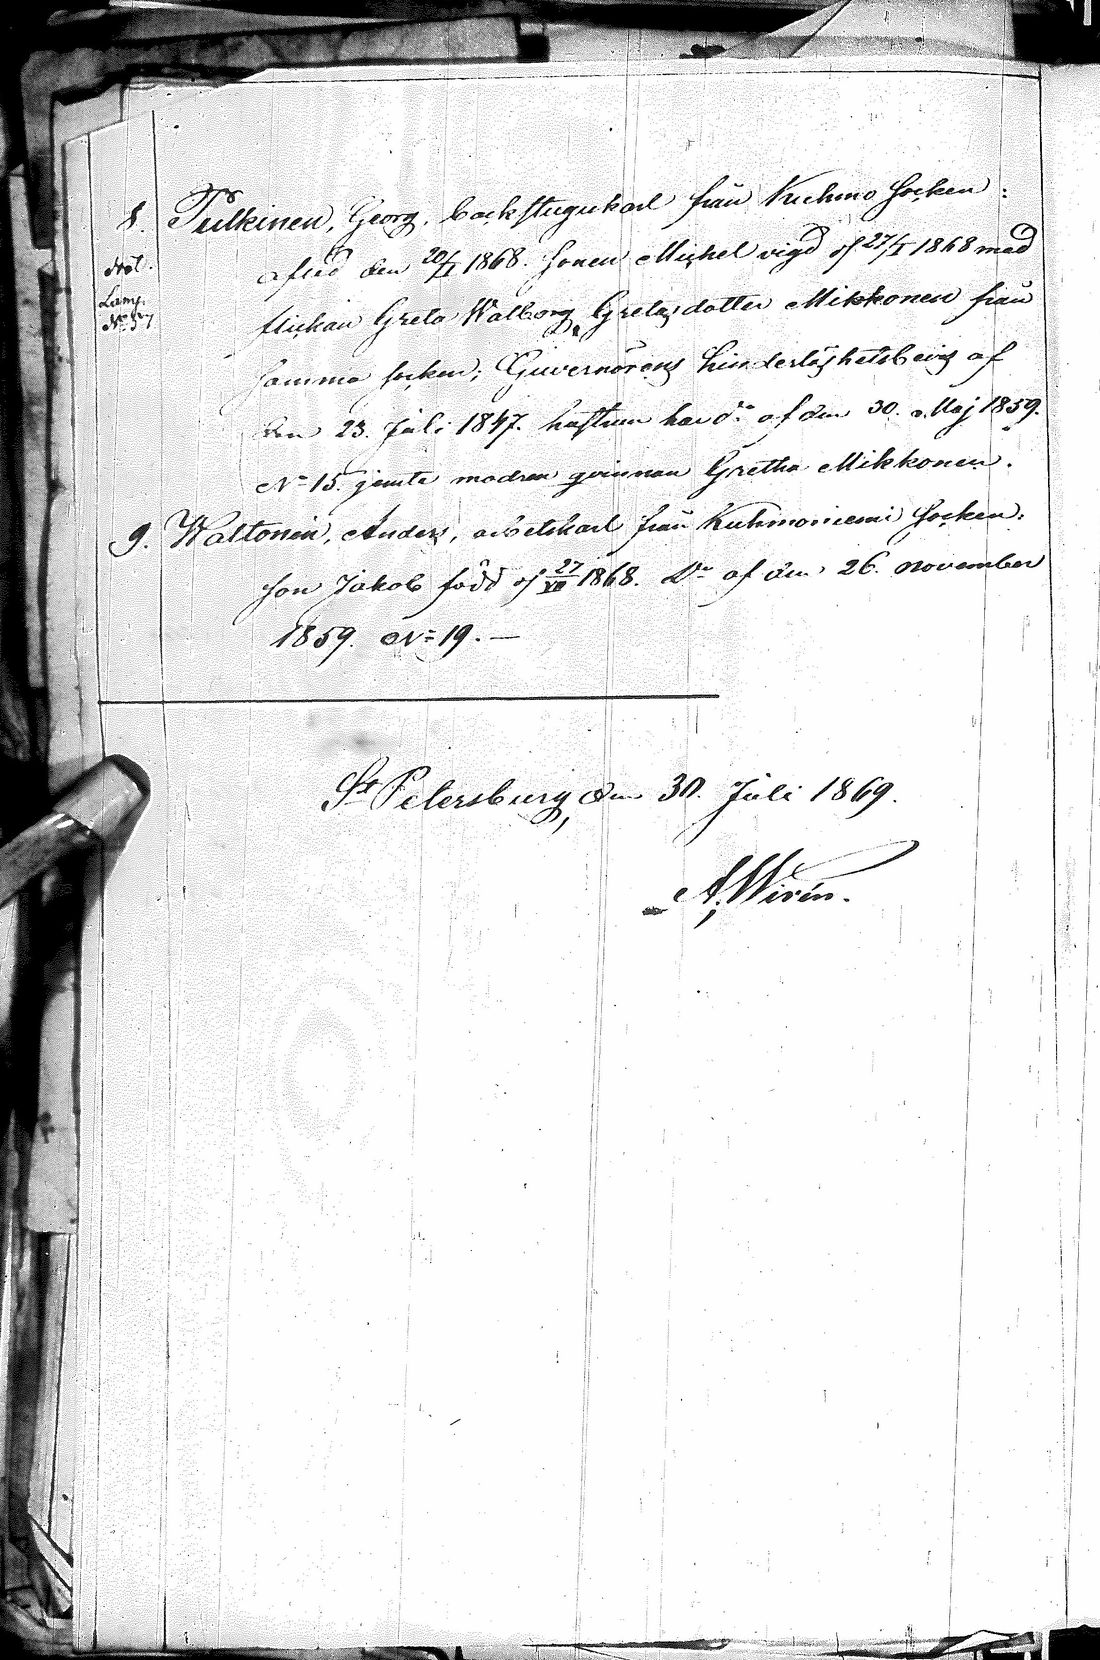 8. Tulkinen, Georg, backstugukarl från Kuhmo socken:
Not.
afled den 20/I 1868. Sonen Michel vigd d 27/I 1868 med
Lamp.
No 57
flickan Greta Walborg Gretasdotter Mikkonen från
samma socken; Guvernörens hinderlöshetsbevis af
den 23. Juli 1847. hustrun har do af den 30. Maj 1859.
No 15. jemte modren qvinnan Gretha Mikkonen.
9. Waltonin, Anders, arbetskarl från Kuhmoniemi socken:
son Jakob född d 27/VII 1868. Do af den 26. november
1859. No 19. —
St Petersburg, den 30. Juli 1869.
A. Wirén.